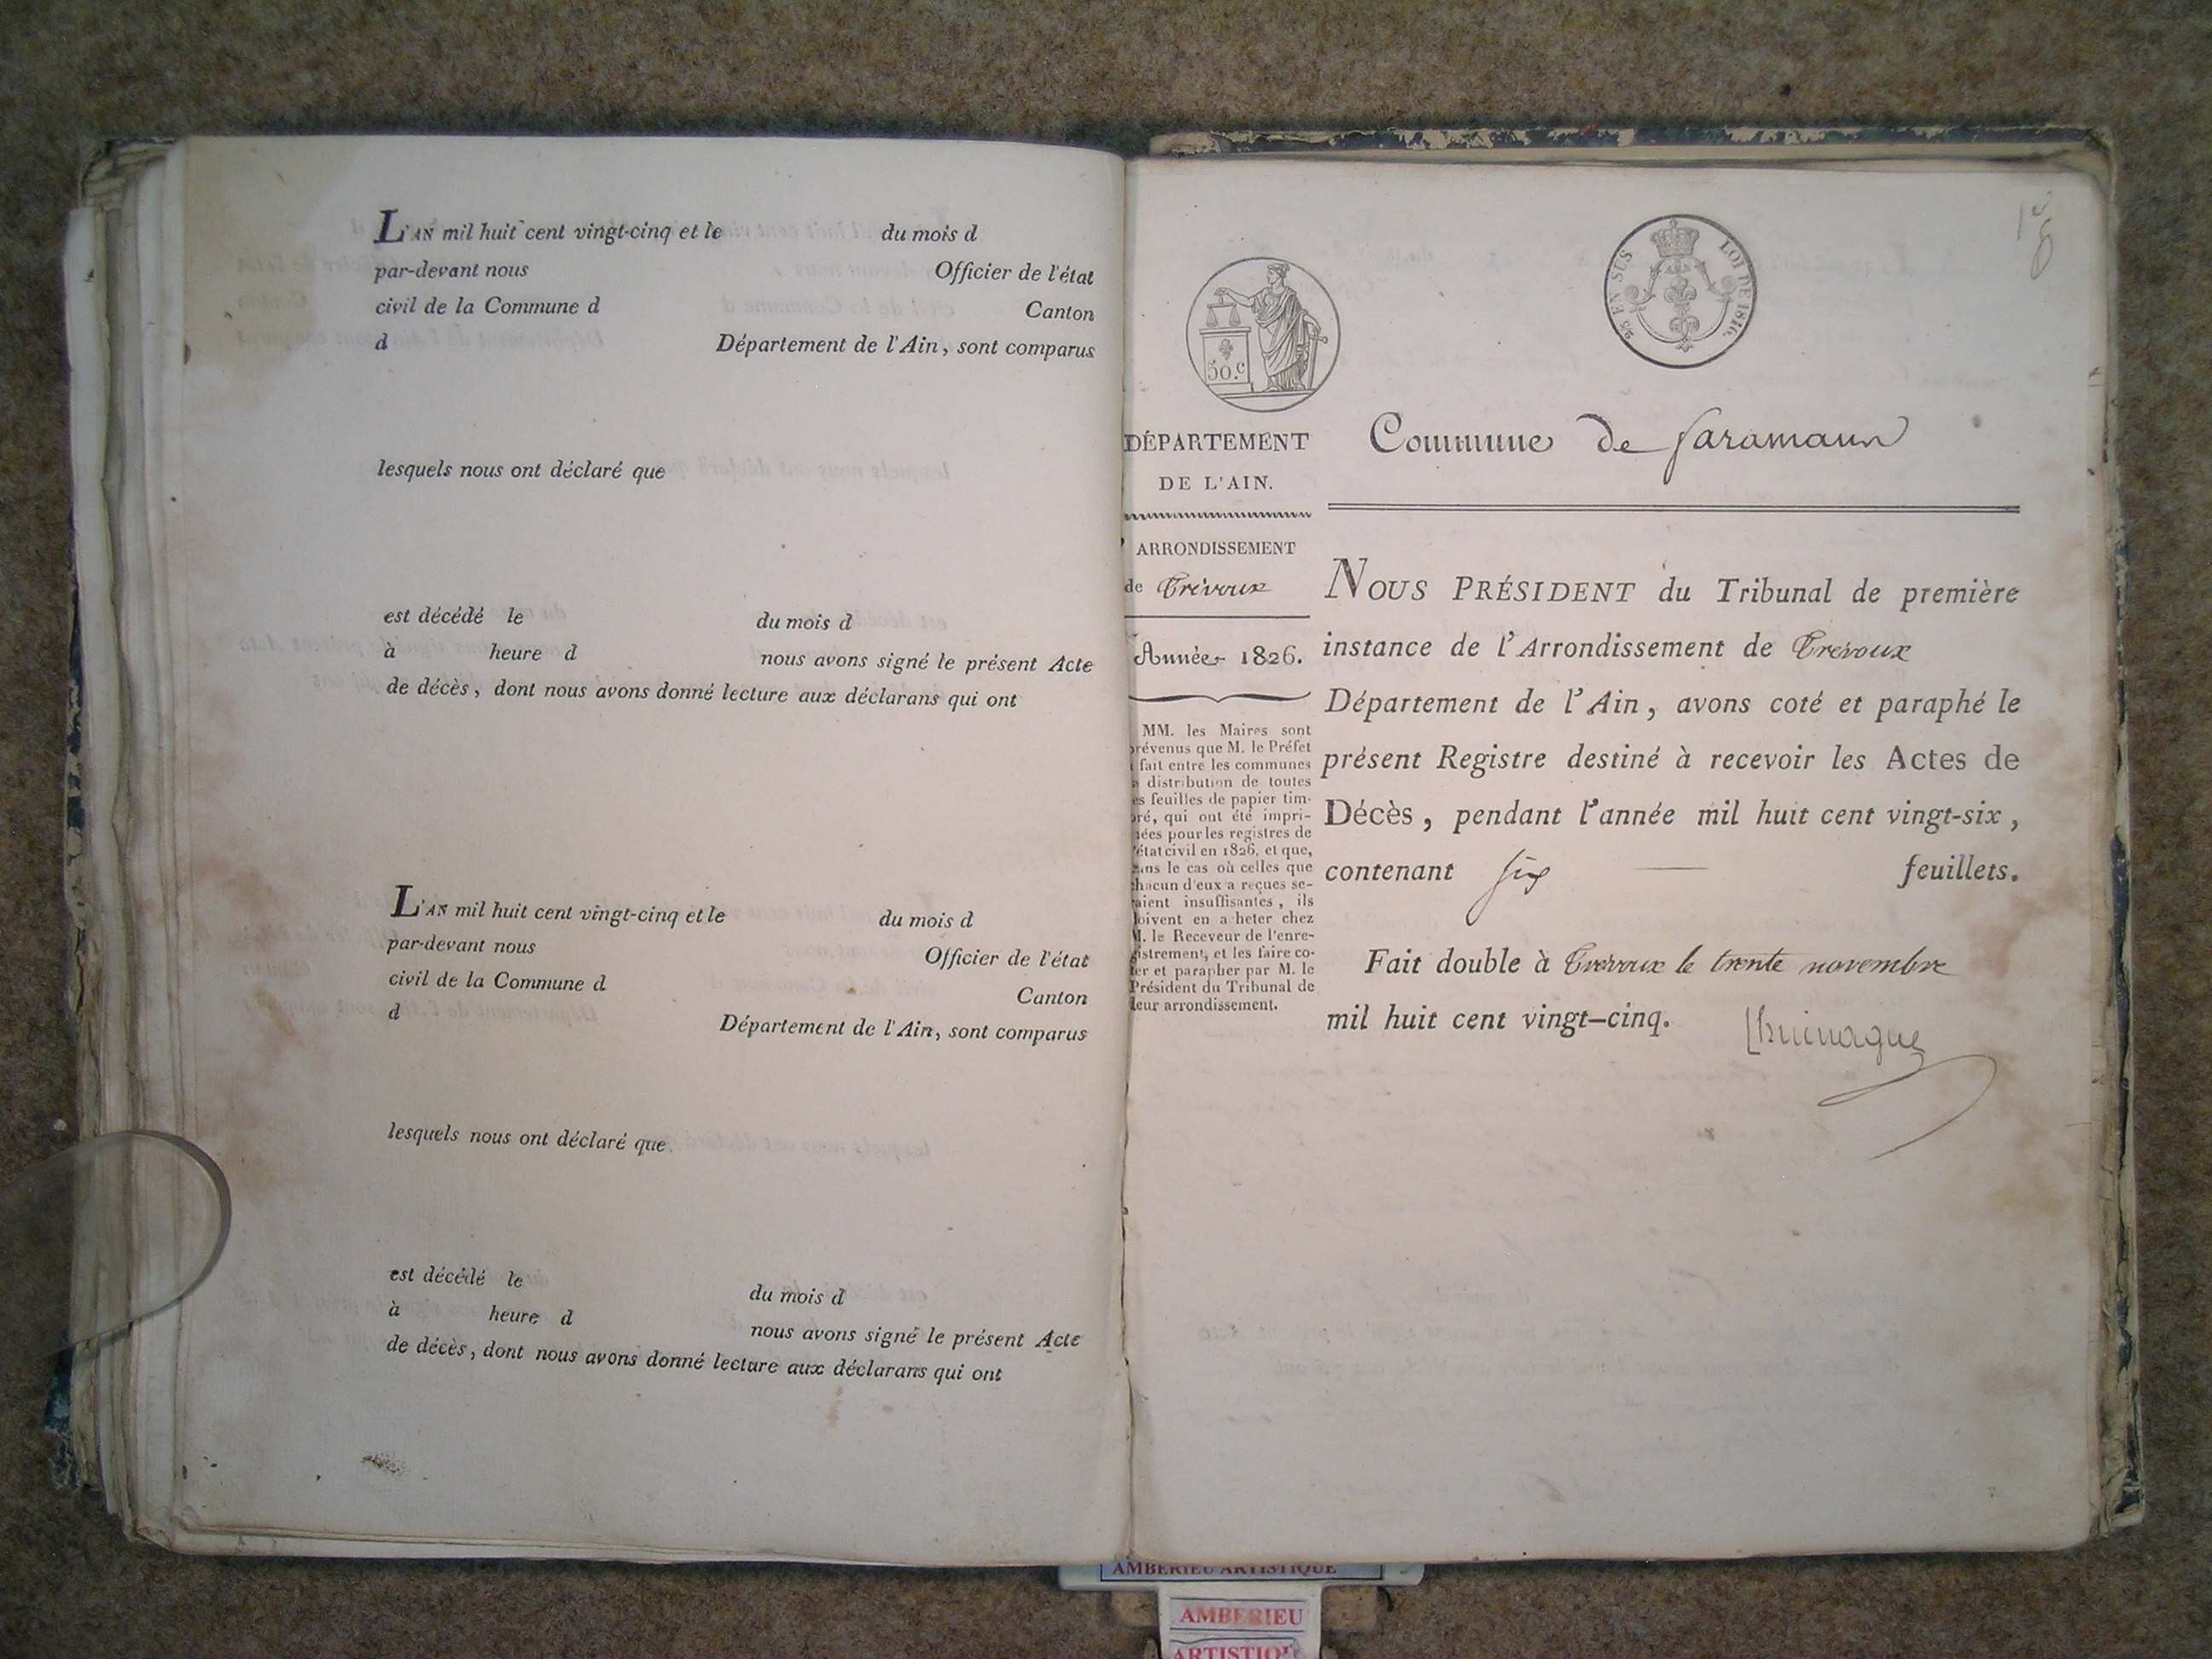 L'AN mil huit cent vingt-cinq et le du mois d
par-devant nous Officier de l'état
civil de la Commune d Canton
d Département de l'Ain, sont comparus
lesquels nous ont déclaré que
est décédé le du mois d
à heure d nous avons signé le présent Acte
de décès, dont nous avons donné lecture aux déclarans qui ont
L'AN mil huit cent vingt-cinq et le du mois d
par-devant nous Officier de l'état
civil de la Commune d Canton
d Département de l'Ain, sont comparus
lesquels nous ont déclaré que
est décédé le du mois d
à heure d nous avons signé le présent Acte
de décès, dont nous avons donné lecture aux déclarans qui ont
50.c
25 EN SUS LOI DE 1816.
DÉPARTEMENT
DE L'AIN.
ARRONDISSEMENT
de Trévoux
Année 1826.
MM. les Maires sont
prévenus que M. le Préfet
fait entre les communes
distribution de toutes
es feuilles de papier tim-
ré, qui ont été impri-
ées pour les registres de
l'état civil en 1826, et que,
ans le cas où celles que
chacun d'eux a reçues se-
raient insuffisantes, ils
doivent en a heter chez
M. le Receveur de l'enre-
gistrement, et les faire co-
ter et parapher par M. le
Président du Tribunal de
leur arrondissement.
Commune de faramans
NOUS PRÉSIDENT du Tribunal de première
instance de l'Arrondissement de Trevoux
Département de l'Ain, avons coté et paraphé le
présent Registre destiné à recevoir les Actes de
Décès, pendant l'année mil huit cent vingt-six,
contenant six feuillets.
Fait double à Trevoux le trente novembre
mil huit cent vingt-cinq.
AMBERIEU ARTISTIQUE
AMBERIEU
ARTISTIQUE